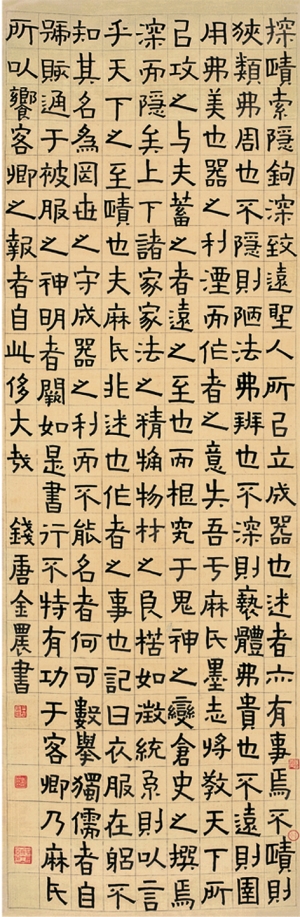 探賾索隱鉤深致遠聖人所㠯立成器也述者亦有事焉不賾則
狹類弗周也不隱則陋法弗辨也不深則褻體弗貴也不遠則圉
用弗美也器之利湮而作者之意失吾于麻氏墨志將教天下所
㠯攻之与夫蓄之者遠之至也而根究于鬼神之變倉史之撰焉
深而隱矣上下諸家家法之精觕物材之良楛如澂統系則以言
乎天下之至賾也夫麻氏非述也作者之事也記曰衣服在躳不
知其名為罔世之守成器之利而不能名者何可數舉獨儒者自
號賅通于被服之神明者闕如是書行不特有功于客卿乃麻氏
所以饗客卿之報者自此侈大哉 錢唐金農書